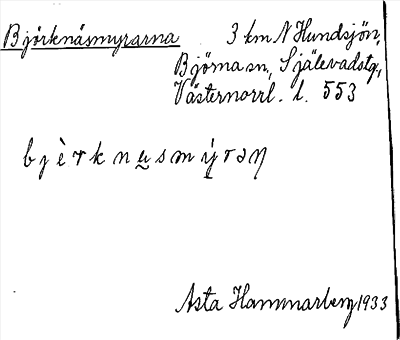 Björknäsmyrarna 3 km N Hundsjön,
Björna sn, Själevadstg,
Västernorrl. l. 553
bjèrknu̯smýrəŋ
Asta Hammarberg 1933